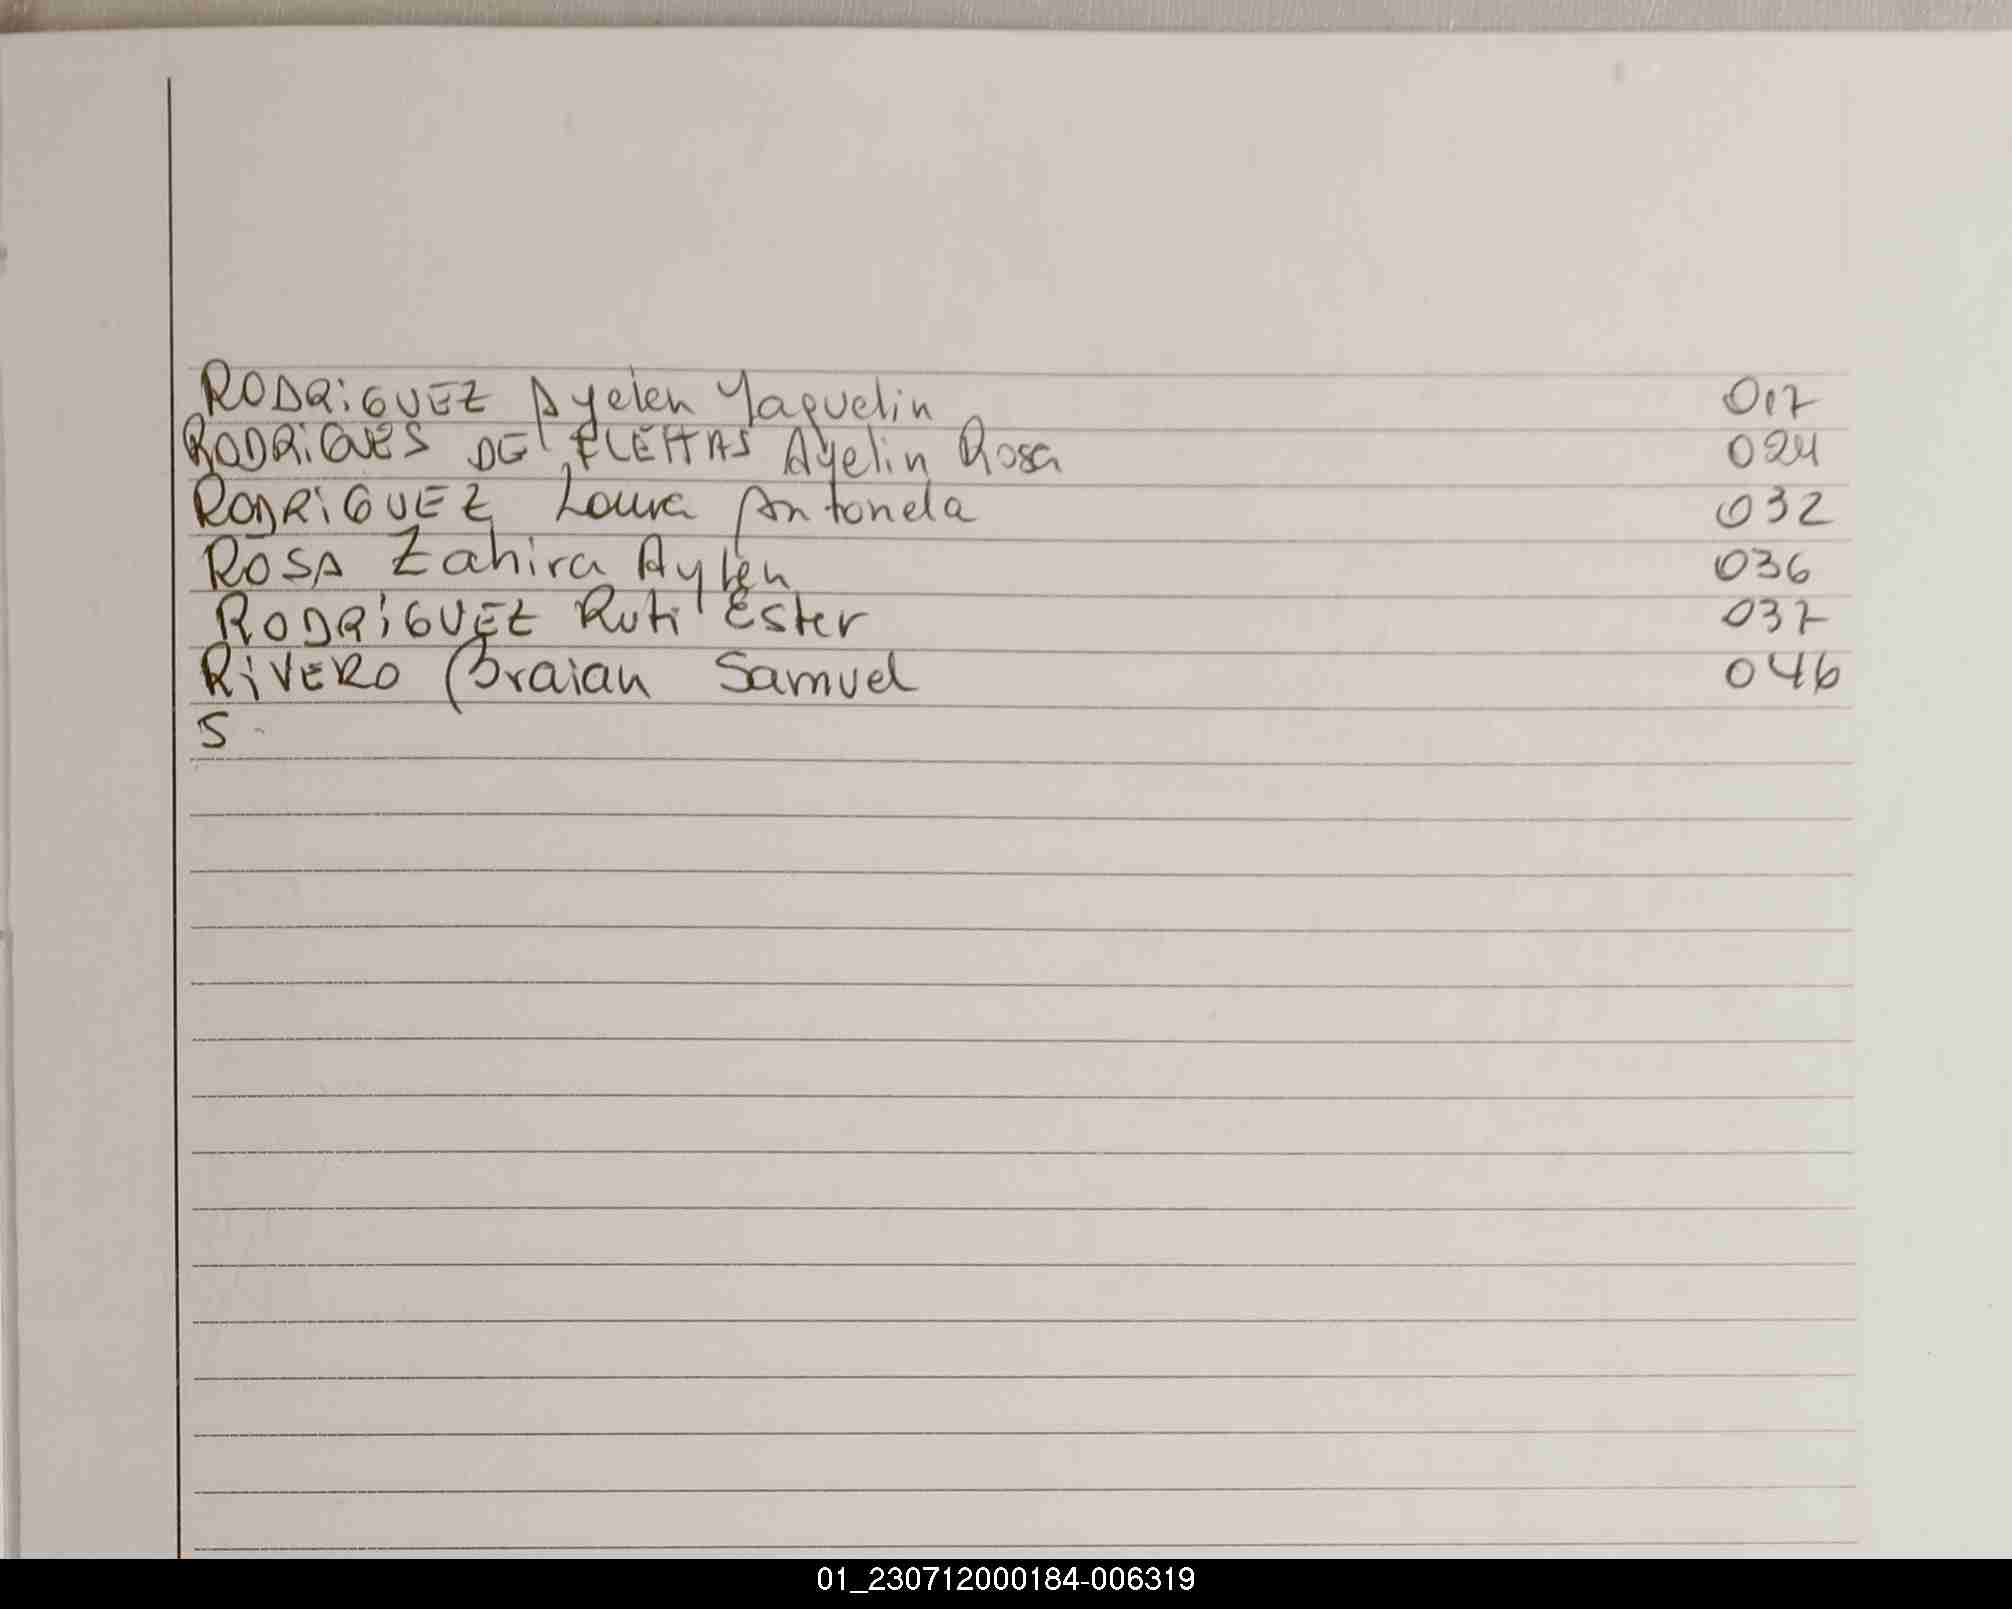 RODRiGUEZ Ayelen Yaquelin 017
RODRiGUES DE FLEITAS Ayelin Rosa 024
RODRiGUEZ Laura Antonela 032
ROSA Zahira Aylen 036
RODRiGUEZ Ruti Ester 037
RiVERO Braian Samuel 046
S
01_230712000184-006319